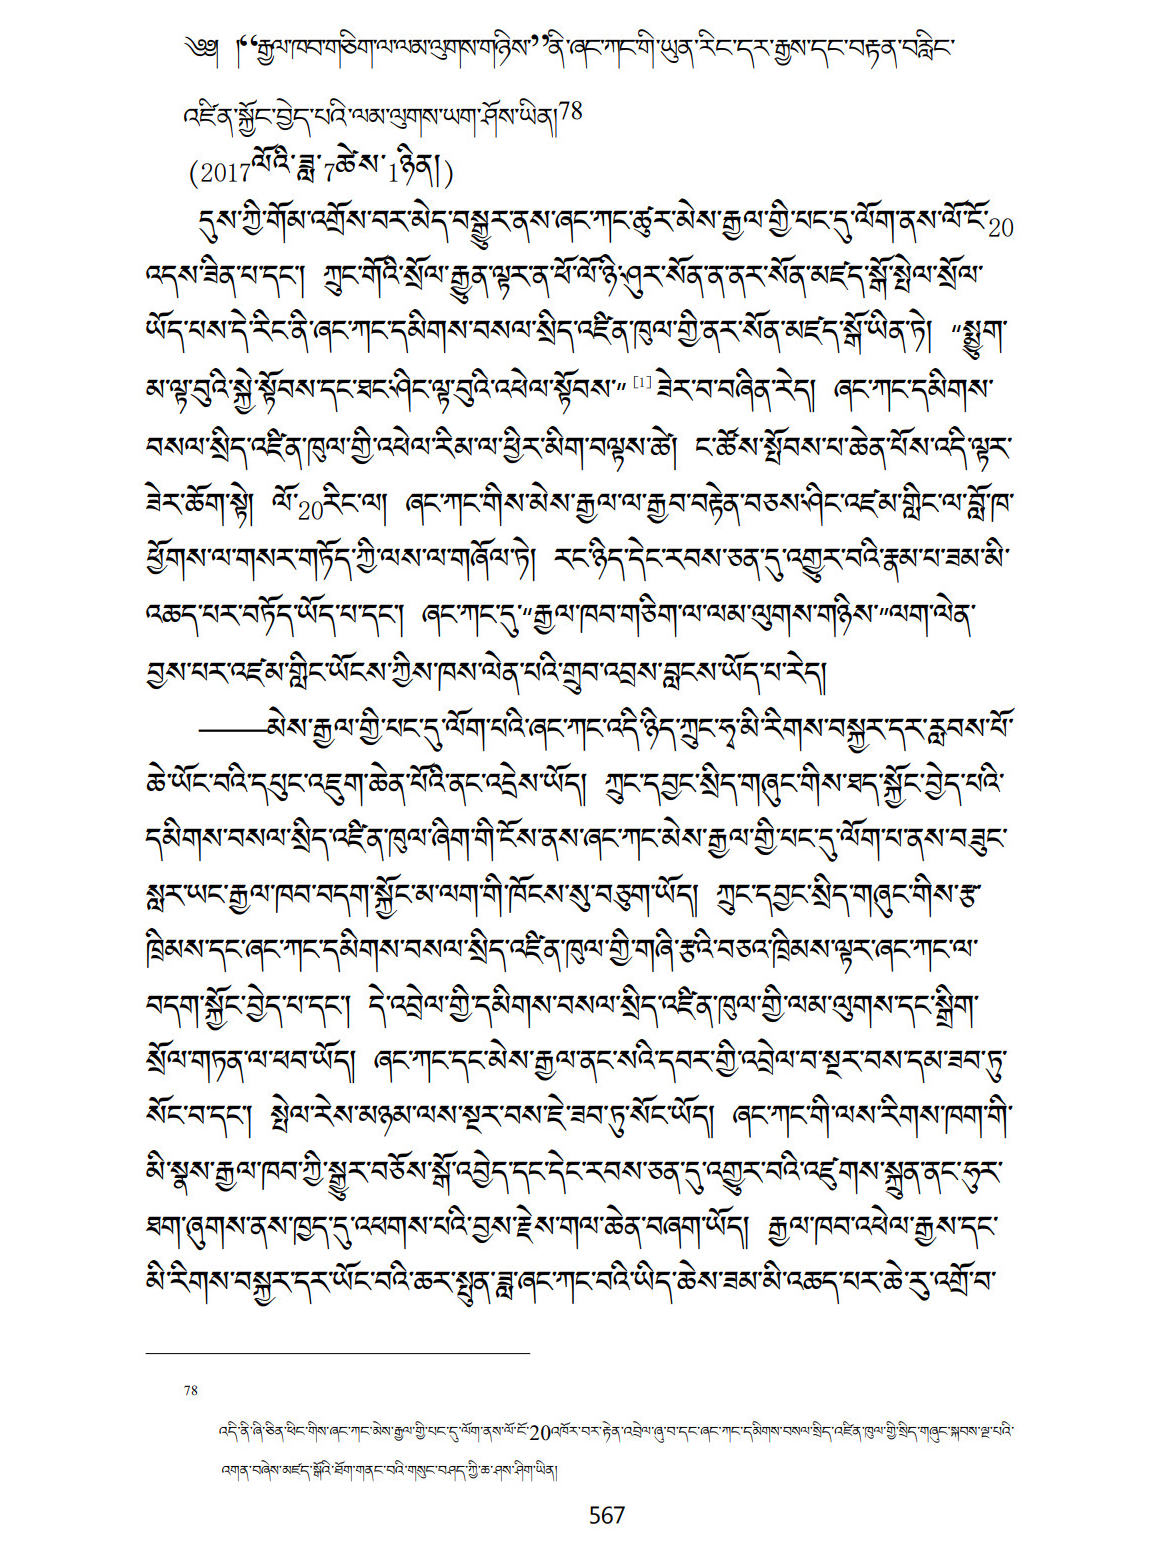 ༄༅། །“རྒྱལ་ཁབ་གཅིག་ལ་ལམ་ལུགས་གཉིས་”ནི་ཞང་ཀང་གི་ཡུན་རིང་དར་རྒྱས་དང་བརྟན་བརླིང་
འཛིན་སྐྱོང་བྱེད་པའི་ལམ་ལུགས་ཡག་ཤོས་ཡིན།78
(2017ལོའི་ཟླ་7ཚེས་1ཉིན།)
དུས་ཀྱི་གོམ་འགྲོས་བར་མེད་བསྒྱུར་ནས་ཞང་ཀང་ཚུར་མེས་རྒྱལ་གྱི་པང་དུ་ལོག་ནས་ལོ་ངོ་20
འདས་ཟིན་པ་དང་། ཀྲུང་གོའི་སྲོལ་རྒྱུན་ལྟར་ན་ཕོ་ལོ་ཉི་ཤུར་སོན་ན་ནར་སོན་མཛད་སྒོ་སྤེལ་སྲོལ་
ཡོད་པས་དེ་རིང་ནི་ཞང་ཀང་དམིགས་བསལ་སྲིད་འཛིན་ཁུལ་གྱི་ནར་སོན་མཛད་སྒོ་ཡིན་ཏེ། “སྨྱུག་
མ་ལྟ་བུའི་སྐྱེ་སྟོབས་དང་ཐང་ཤིང་ལྟ་བུའི་འཕེལ་སྟོབས་” [1] ཟེར་བ་བཞིན་རེད། ཞང་ཀང་དམིགས་
བསལ་སྲིད་འཛིན་ཁུལ་གྱི་འཕེལ་རིམ་ལ་ཕྱིར་མིག་བལྟས་ཚེ། ང་ཚོས་སྤོབས་པ་ཆེན་པོས་འདི་ལྟར་
ཟེར་ཆོག་སྟེ། ལོ་20རིང་ལ། ཞང་ཀང་གིས་མེས་རྒྱལ་ལ་རྒྱབ་བརྟེན་བཅས་ཤིང་འཛམ་གླིང་ལ་བློ་ཁ་
ཕྱོགས་ལ་གསར་གཏོད་ཀྱི་ལས་ལ་གཞོལ་ཏེ། རང་ཉིད་དེང་རབས་ཅན་དུ་འགྱུར་བའི་རྣམ་པ་ཟམ་མི་
འཆད་པར་བཏོད་ཡོད་པ་དང་། ཞང་ཀང་དུ་“རྒྱལ་ཁབ་གཅིག་ལ་ལམ་ལུགས་གཉིས་”ལག་ལེན་
བྱས་པར་འཛམ་གླིང་ཡོངས་ཀྱིས་ཁས་ལེན་པའི་གྲུབ་འབྲས་བླངས་ཡོད་པ་རེད།
———མེས་རྒྱལ་གྱི་པང་དུ་ལོག་པའི་ཞང་ཀང་འདི་ཉིད་ཀྲུང་ཧྭ་མི་རིགས་བསྐྱར་དར་རླབས་པོ་
ཆེ་ཡོང་བའི་དཔུང་འཇུག་ཆེན་པོའི་ནང་འདྲེས་ཡོད། ཀྲུང་དབྱང་སྲིད་གཞུང་གིས་ཐད་སྐྱོང་བྱེད་པའི་
དམིགས་བསལ་སྲིད་འཛིན་ཁུལ་ཞིག་གི་ངོས་ནས་ཞང་ཀང་མེས་རྒྱལ་གྱི་པང་དུ་ལོག་པ་ནས་བཟུང་
སླར་ཡང་རྒྱལ་ཁབ་བདག་སྐྱོང་མ་ལག་གི་ཁོངས་སུ་བཅུག་ཡོད། ཀྲུང་དབྱང་སྲིད་གཞུང་གིས་རྩ་
ཁྲིམས་དང་ཞང་ཀང་དམིགས་བསལ་སྲིད་འཛིན་ཁུལ་གྱི་གཞི་རྩའི་བཅའ་ཁྲིམས་ལྟར་ཞང་ཀང་ལ་
བདག་སྐྱོང་བྱེད་པ་དང་། དེ་འབྲེལ་གྱི་དམིགས་བསལ་སྲིད་འཛིན་ཁུལ་གྱི་ལམ་ལུགས་དང་སྒྲིག་
སྲོལ་གཏན་ལ་ཕབ་ཡོད། ཞང་ཀང་དང་མེས་རྒྱལ་ནང་སའི་དབར་གྱི་འབྲེལ་བ་སྔར་བས་དམ་ཟབ་ཏུ་
སོང་བ་དང་། སྤེལ་རེས་མཉམ་ལས་སྔར་བས་ཇེ་ཟབ་ཏུ་སོང་ཡོད། ཞང་ཀང་གི་ལས་རིགས་ཁག་གི་
མི་སྣས་རྒྱལ་ཁབ་ཀྱི་སྒྱུར་བཅོས་སྒོ་འབྱེད་དང་དེང་རབས་ཅན་དུ་འགྱུར་བའི་འཛུགས་སྐྲུན་ནང་ཧུར་
ཐག་ཞུགས་ནས་ཁྱད་དུ་འཕགས་པའི་བྱས་རྗེས་གལ་ཆེན་བཞག་ཡོད། རྒྱལ་ཁབ་འཕེལ་རྒྱས་དང་
མི་རིགས་བསྐྱར་དར་ཡོང་བའི་ཆར་སྤུན་ཟླ་ཞང་ཀང་བའི་ཡིད་ཆེས་ཟམ་མི་འཆད་པར་ཆེ་རུ་འགྲོ་བ་
78
འདི་ནི་ཞི་ཅིན་ཕིང་གིས་ཞང་ཀང་མེས་རྒྱལ་གྱི་པང་དུ་ལོག་ནས་ལོ་ངོ་20འཁོར་བར་རྟེན་འབྲེལ་ཞུ་བ་དང་ཞང་ཀང་དམིགས་བསལ་སྲིད་འཛིན་ཁུལ་གྱི་སྲིད་གཞུང་སྐབས་ལྔ་པའི་
འགན་བཞེས་མཛད་སྒོའི་ཐོག་གནང་བའི་གསུང་བཤད་ཀྱི་ཆ་ཤས་ཤིག་ཡིན།
567